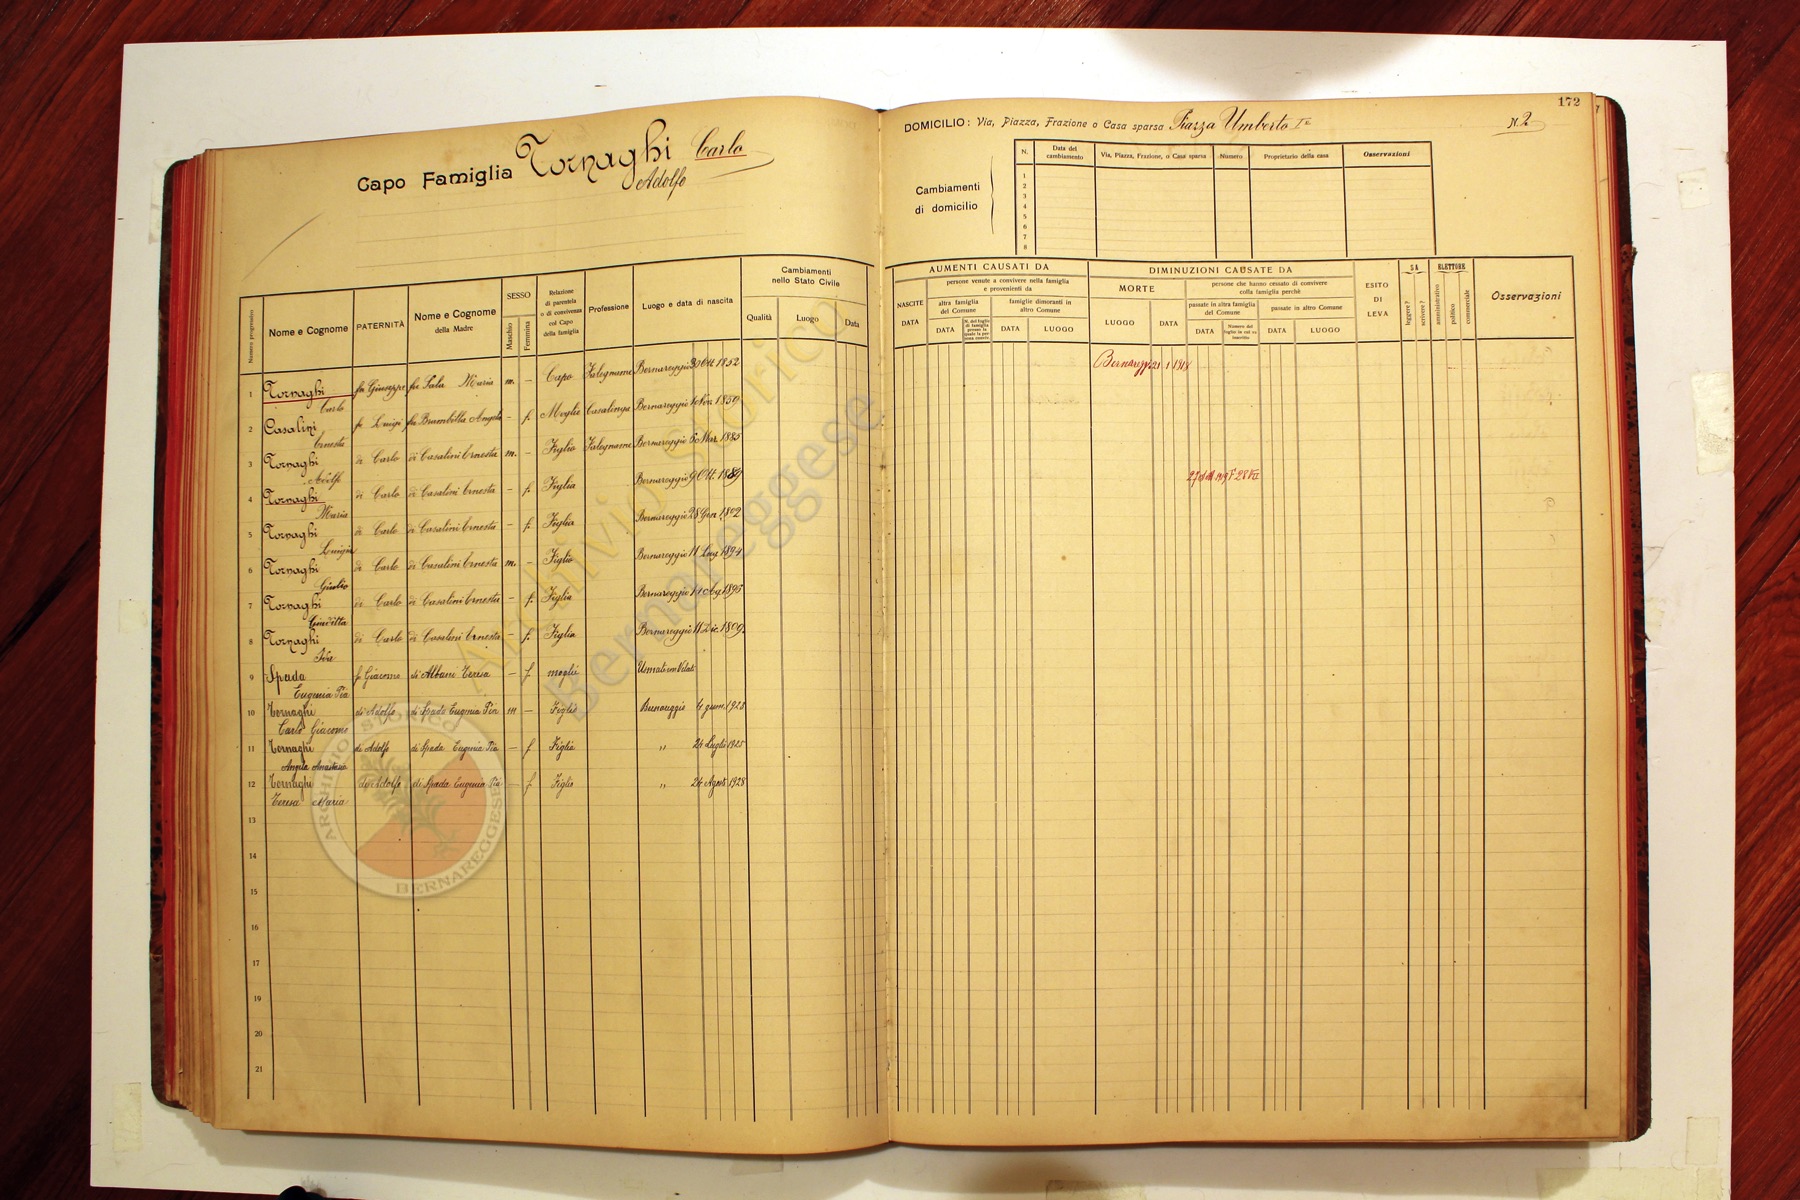 172
Capo Famiglia Tornaghi Carlo
Adolfo
DOMICILIO: Via, Piazza, Frazione o Casa sparsa Piazza Umberto I° N. 2
Cambiamenti
di domicilio
N. Data del cambiamento Via, Piazza, Frazione, o Casa sparsa Numero Proprietario della casa Osservazioni
1
2
3
4
5
6
7
8
Numero progressivo
Nome e Cognome
PATERNITÀ
Nome e Cognome della Madre
SESSO
Maschio
Femmina
Relazione di parentela o di convivenza col Capo della famiglia
Professione
Luogo e data di nascita
Cambiamenti nello Stato Civile
Qualità Luogo Data
1 Tornaghi Carlo fu Giuseppe fu Sala Maria m. – Capo Falegname Bernareggio 30 Ott. 1852
2 Casalini Ernesta fu Luigi fu Brambilla Angela – f. Moglie Casalinga Bernareggio 1 Nov. 1859
3 Tornaghi Adolfo di Carlo di Casalini Ernesta m. – Figlio Falegname Bernareggio Mar. 1885
4 Tornaghi Maria di Carlo di Casalini Ernesta – f. Figlia Bernareggio 9 Ott. 1889
5 Tornaghi Luigia di Carlo di Casalini Ernesta – f. Figlia Bernareggio 28 Gen. 1892
6 Tornaghi Giulio di Carlo di Casalini Ernesta m. – Figlio Bernareggio 11 Lug. 1894
7 Tornaghi Giuditta di Carlo di Casalini Ernesta – f. Figlia Bernareggio
8 Tornaghi di Carlo di Casalini Ernesta – f. Figlia Bernareggio 11 Dic.
9 Spada Eugenia Pia fu Giacomo di Albani Teresa – f moglie Usmate con Velate
10 Tornaghi Carlo Giacomo di Adolfo di Spada Eugenia Pia m – Figlio Bernareggio 4 giun. 1923
11 Tornaghi Angela Anastasia di Adolfo di Spada Eugenia Pia – f Figlia " 24 Luglio 1925
12 Tornaghi Teresa Maria di Adolfo di Spada Eugenia Pia – f Figlia " 24 Agost. 1928
13
14
15
16
17
18
19
20
21
AUMENTI CAUSATI DA
NASCITE
DATA
persone venute a convivere nella famiglia e provenienti da
altra famiglia del Comune
DATA
N. del foglio di famiglia presso la quale la persona convive
famiglie dimoranti in altro Comune
DATA LUOGO
DIMINUZIONI CAUSATE DA
MORTE
LUOGO DATA
persone che hanno cessato di convivere colla famiglia perchè
passate in altra famiglia del Comune
DATA
Numero del foglio in cui es. inscritto
passate in altro Comune
DATA LUOGO
ESITO DI LEVA
SA
leggere?
scrivere?
ELETTORE
amministrativo
politico
commerciale
Osservazioni
Bernareggio 21 1 1918
Archivio Storico
Bernareggese
ARCHIVIO STORICO
BERNAREGGESE